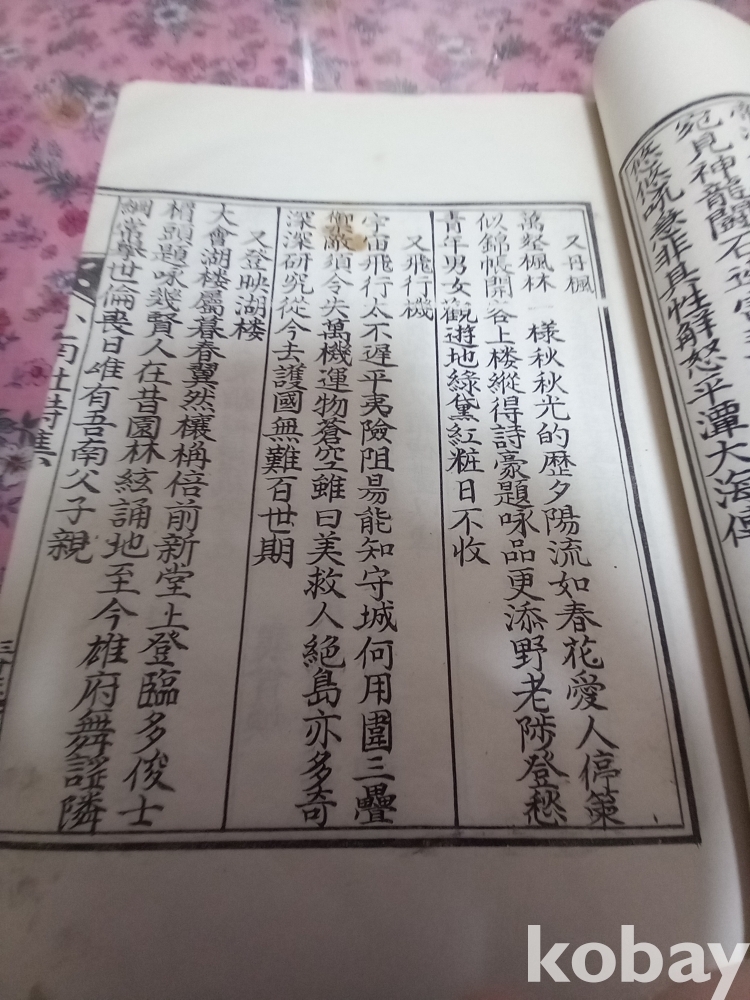 宛見神龍鬪石
悠悠 非其性解怒平潭大海
又丹楓
萬 楓林一樣秋秋光的歷夕陽流如春花愛人停策
似錦帳開谷上楼縱得詩豪題咏品更添野老陟登愁
青年男女觀遊地綠黛紅粧日不收
又飛行機
宇宙飛行太不遲平夷險阻昜能知守城何用圍三疊
禦敵須令失萬機運物蒼空雖曰美救人絶島亦多奇
深深研究從今去護國無難百世期
又登映湖楼
大會湖楼屬暮春翼然欀桷倍前新堂上登臨多俊士
楣頭題咏幾賢人在昔園林絃誦地至今雄府舞謡隣
綱常擧世倫喪日唯有吾南父子親
kobay